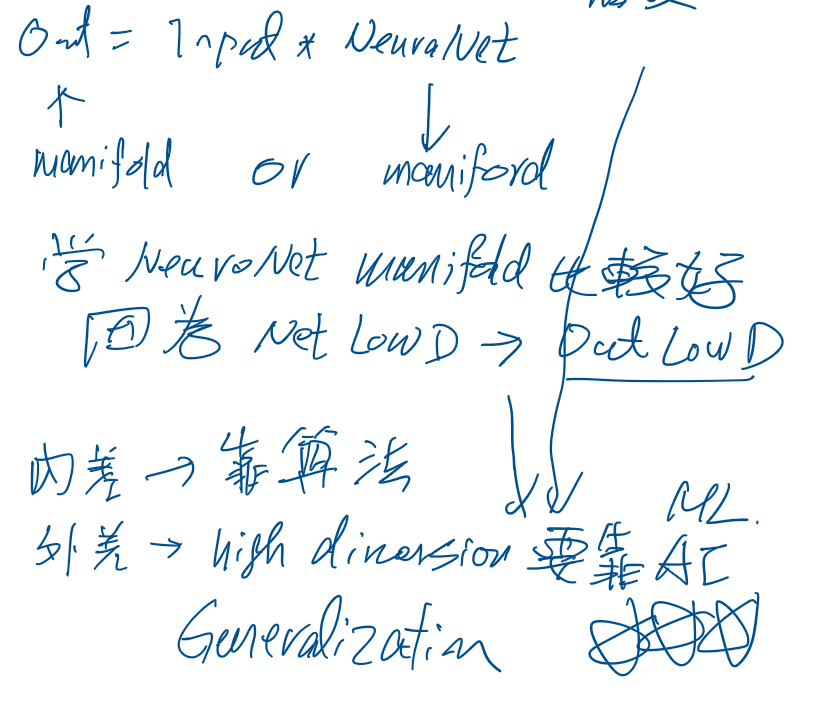 Out = Input * NeuralNet
manifold or maniford
当 NeuroNet manifold 比較好
回卷 Net Low D → Out Low D
内差 → 靠算法
外差 → high dimension 要靠 ML. AI
Generalization